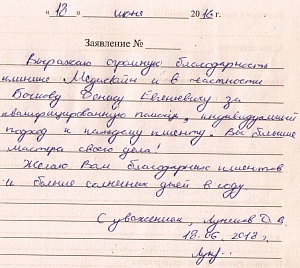 « 18 » июня 2016 г.
Заявление №
Выражаю огромную благодарность
клинике Медискейт и в частности
Бочкову Денису Евгеньевичу за
квалифицированную помощь, индивидуальный
подход к каждому клиенту. Вы большие
мастера своего дела!
Желаю Вам благодарных клиентов
и больше солнечных дней в году
С уважением, Лунков Д.В.
18.06.2018 г,